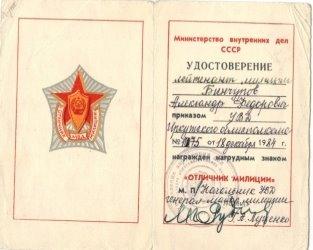 ОТЛИЧНИК
МВД
МИЛИЦИИ
Министерство внутренних дел
СССР
УДОСТОВЕРЕНИЕ
лейтенант милиции
Александр Федорович
приказом УВД
Иркутского облисполкома
№ 75 от "18" декабря 1984 г.
награжден нагрудным знаком
«ОТЛИЧНИК МИЛИЦИИ»
М. П. Начальник УВД
генерал-майор милиции